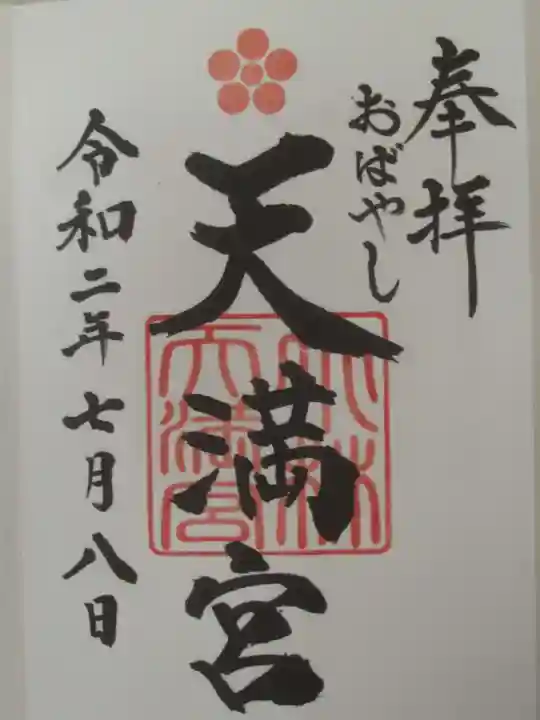 奉拝
おばやし
天満宮
小林天満宮
令和二年七月八日